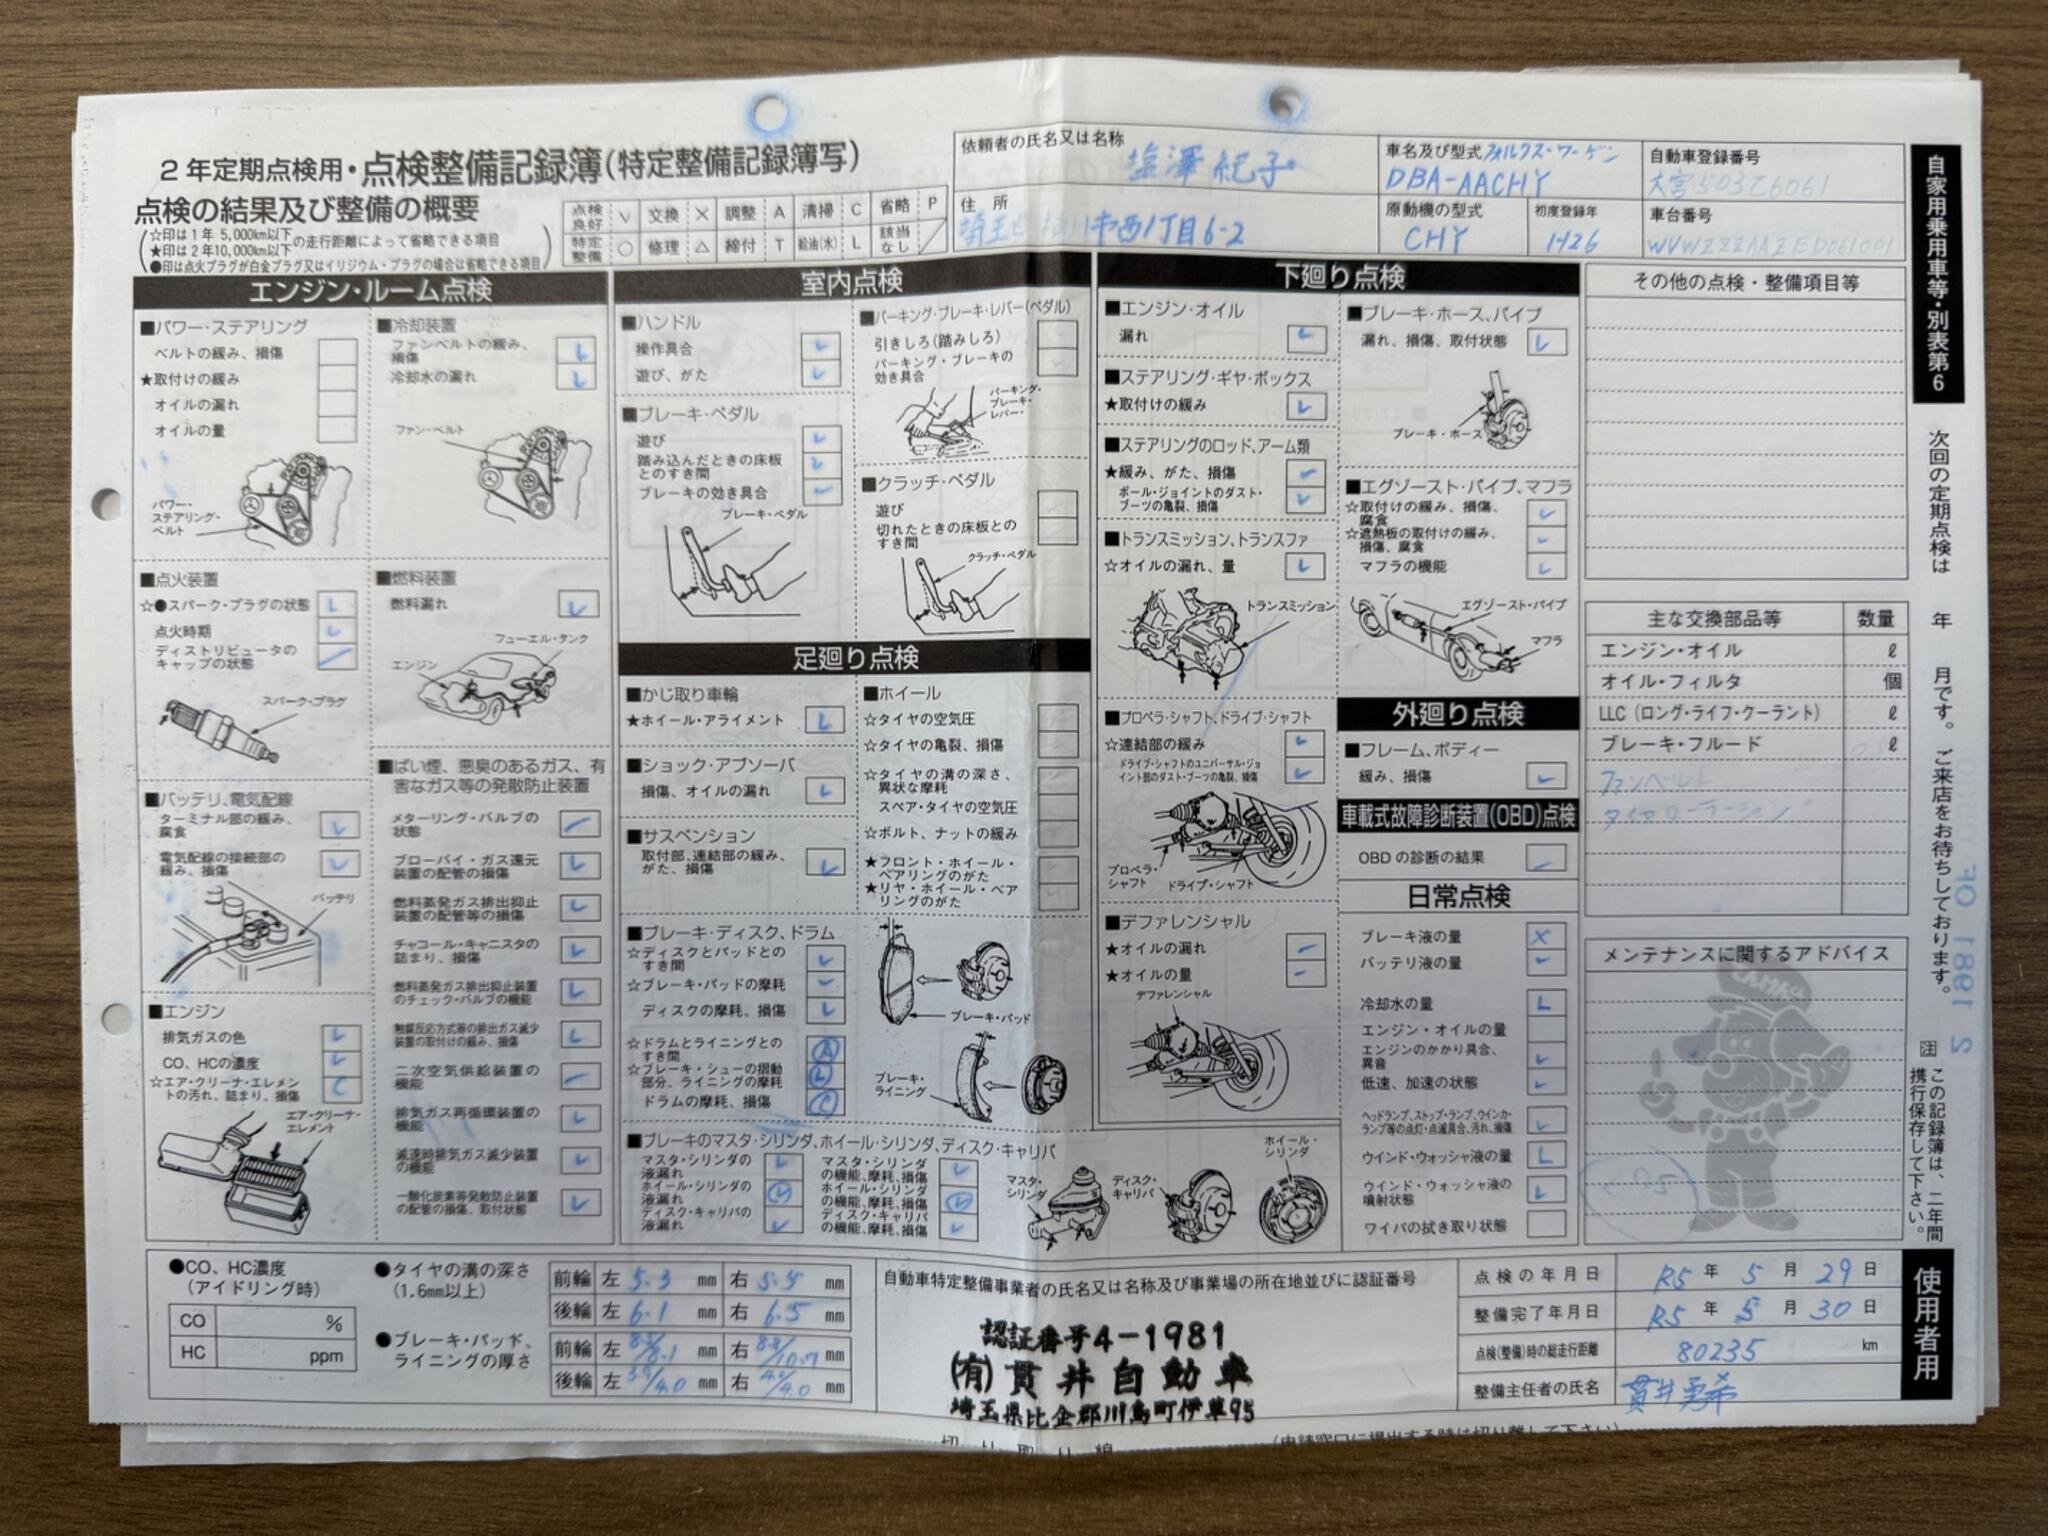 2年定期点検用・点検整備記録簿(特定整備記録簿写)
点検の結果及び整備の概要
☆印は1年 5,000km以下
★印は2年10,000km以下
の走行距離によって省略できる項目
●印は点火プラグが白金プラグ又はイリジウム・プラグの場合は省略できる項目
点検良好 V 交換 × 調整 A 清掃 C 省略 P
特定整備 ○ 修理 △ 締付 T 給油(水) L 該当なし ╱
依頼者の氏名又は名称
塩澤 紀子
住所
市西1丁目6-2
車名及び型式 フォルクスワーゲン
DBA-AACHY
自動車登録番号
大宮503て6061
原動機の型式
CHY
初度登録年
H26
車台番号
自家用乗用車等・別表第6
エンジン・ルーム点検
■パワー・ステアリング
ベルトの緩み、損傷
★取付けの緩み
オイルの漏れ
オイルの量
パワー・
ステアリング・
ベルト
■冷却装置
ファンベルトの緩み、
損傷
冷却水の漏れ
ファン・ベルト
■点火装置
☆●スパーク・プラグの状態
点火時期
ディストリビュータの
キャップの状態
スパーク・プラグ
■燃料装置
燃料漏れ
フューエル・タンク
エンジン
■バッテリ、電気配線
ターミナル部の緩み、
腐食
電気配線の接続部の
緩み、損傷
バッテリ
■エンジン
排気ガスの色
CO、HCの濃度
☆エア・クリーナ・エレメン
トの汚れ、詰まり、損傷
エア・クリーナ・
エレメント
■ばい煙、悪臭のあるガス、有
害なガス等の発散防止装置
メターリング・バルブの
状態
ブローバイ・ガス還元
装置の配管の損傷
燃料蒸発ガス排出抑止
装置の配管等の損傷
チャコール・キャニスタの
詰まり、損傷
燃料蒸発ガス排出抑止装置
のチェック・バルブの機能
触媒反応方式等の排出ガス減少
装置の取付けの緩み、損傷
二次空気供給装置の
機能
排気ガス再循環装置の
機能
減速時排気ガス減少装置
の機能
一酸化炭素等発散防止装置
の配管の損傷、取付状態
室内点検
■ハンドル
操作具合
遊び、がた
■ブレーキ・ペダル
遊び
踏み込んだときの床板
とのすき間
ブレーキの効き具合
ブレーキ・ペダル
■パーキング・ブレーキ・レバー(ペダル)
引きしろ(踏みしろ)
パーキング・ブレーキの
効き具合
パーキング・
ブレーキ・
レバー
■クラッチ・ペダル
遊び
切れたときの床板との
すき間
クラッチ・ペダル
足廻り点検
■かじ取り車輪
★ホイール・アライメント
■ショック・アブソーバ
損傷、オイルの漏れ
■サスペンション
取付部、連結部の緩み、
がた、損傷
■ホイール
☆タイヤの空気圧
☆タイヤの亀裂、損傷
☆タイヤの溝の深さ、
異状な摩耗
スペア・タイヤの空気圧
☆ボルト、ナットの緩み
★フロント・ホイール・
ベアリングのがた
★リヤ・ホイール・ベア
リングのがた
■ブレーキ・ディスク、ドラム
☆ディスクとパッドとの
すき間
☆ブレーキ・パッドの摩耗
ディスクの摩耗、損傷
☆ドラムとライニングとの
すき間
☆ブレーキ・シューの摺動
部分、ライニングの摩耗
ドラムの摩耗、損傷
ブレーキ・パッド
ブレーキ・
ライニング
■ブレーキのマスタ・シリンダ、ホイール・シリンダ、ディスク・キャリパ
マスタ・シリンダの
液漏れ
ホイール・シリンダの
液漏れ
ディスク・キャリパの
液漏れ
マスタ・シリンダ
の機能、摩耗、損傷
ホイール・シリンダ
の機能、摩耗、損傷
ディスク・キャリパ
の機能、摩耗、損傷
マスタ・
シリンダ
ディスク・
キャリパ
ホイール・
シリンダ
下廻り点検
■エンジン・オイル
漏れ
■ステアリング・ギヤ・ボックス
★取付けの緩み
■ステアリングのロッド、アーム類
★緩み、がた、損傷
ボール・ジョイントのダスト・
ブーツの亀裂、損傷
■トランスミッション、トランスファ
☆オイルの漏れ、量
トランスミッション
■プロペラ・シャフト、ドライブ・シャフト
☆連結部の緩み
ドライブ・シャフトのユニバーサル・ジョ
イント部のダスト・ブーツの亀裂、損傷
プロペラ・
シャフト
ドライブ・シャフト
■デファレンシャル
★オイルの漏れ
★オイルの量
デファレンシャル
■ブレーキ・ホース、パイプ
漏れ、損傷、取付状態
ブレーキ・ホース
■エグゾースト・パイプ、マフラ
☆取付けの緩み、損傷、
腐食
☆遮熱板の取付けの緩み、
損傷、腐食
マフラの機能
エグゾースト・パイプ
マフラ
外廻り点検
■フレーム、ボディー
緩み、損傷
車載式故障診断装置(OBD)点検
OBDの診断の結果
日常点検
ブレーキ液の量
バッテリ液の量
冷却水の量
エンジン・オイルの量
エンジンのかかり具合、
異音
低速、加速の状態
ヘッドランプ、ストップ・ランプ、ウインカ・
ランプ等の点灯・点滅具合、汚れ、損傷
ウインド・ウォッシャ液の量
ウインド・ウォッシャ液の
噴射状態
ワイパの拭き取り状態
その他の点検・整備項目等
主な交換部品等 数量
エンジン・オイル ℓ
オイル・フィルタ 個
LLC(ロング・ライフ・クーラント) ℓ
ブレーキ・フルード ℓ
ファンベルト
タイヤローテーション
メンテナンスに関するアドバイス
次回の定期点検は 年 月です。ご来店をお待ちしております。
注 この記録簿は、二年間
携行保存して下さい。
使用者用
●CO、HC濃度
(アイドリング時)
CO %
HC ppm
●タイヤの溝の深さ
(1.6mm以上)
前輪 左 5.3 mm 右 5.5 mm
後輪 左 6.1 mm 右 6.5 mm
●ブレーキ・パッド、
ライニングの厚さ
前輪 左 8.1 mm 右 10.7 mm
後輪 左 4.0 mm 右 4.0 mm
自動車特定整備事業者の氏名又は名称及び事業場の所在地並びに認証番号
認証番号4-1981
(有)貫井自動車
埼玉県比企郡川島町伊草95
点検の年月日 R5 年 5 月 29 日
整備完了年月日 R5 年 5 月 30 日
点検(整備)時の総走行距離 80235 km
整備主任者の氏名 貫井
切り取り線
(申請窓口に提出する時は切り離して下さい)